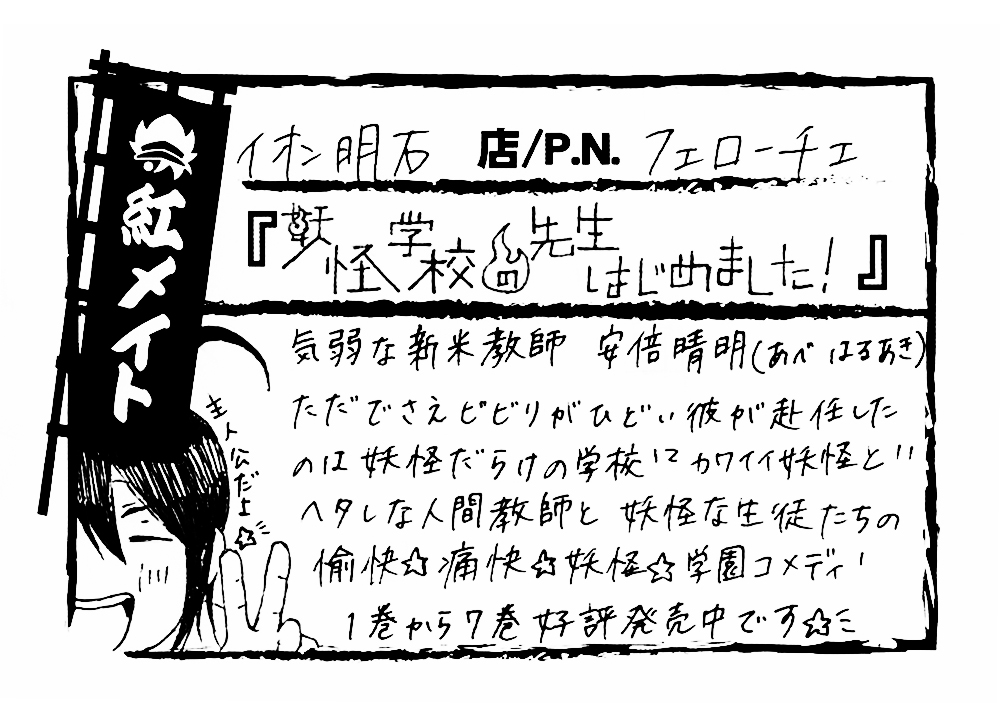 紅メイト
イオン明石 店/P.N. フェローチェ
『妖怪学校の先生はじめました!』
気弱な新米教師 安倍晴明(あべ はるあき)
ただでさえビビりがひどい彼が赴任した
のは妖怪だらけの学校!? カワイイ妖怪と!!
ヘタレな人間教師と 妖怪な生徒たちの
愉快☆痛快☆妖怪☆学園コメディ!
1巻から7巻 好評発売中です☆ミ
主人公だよ☆